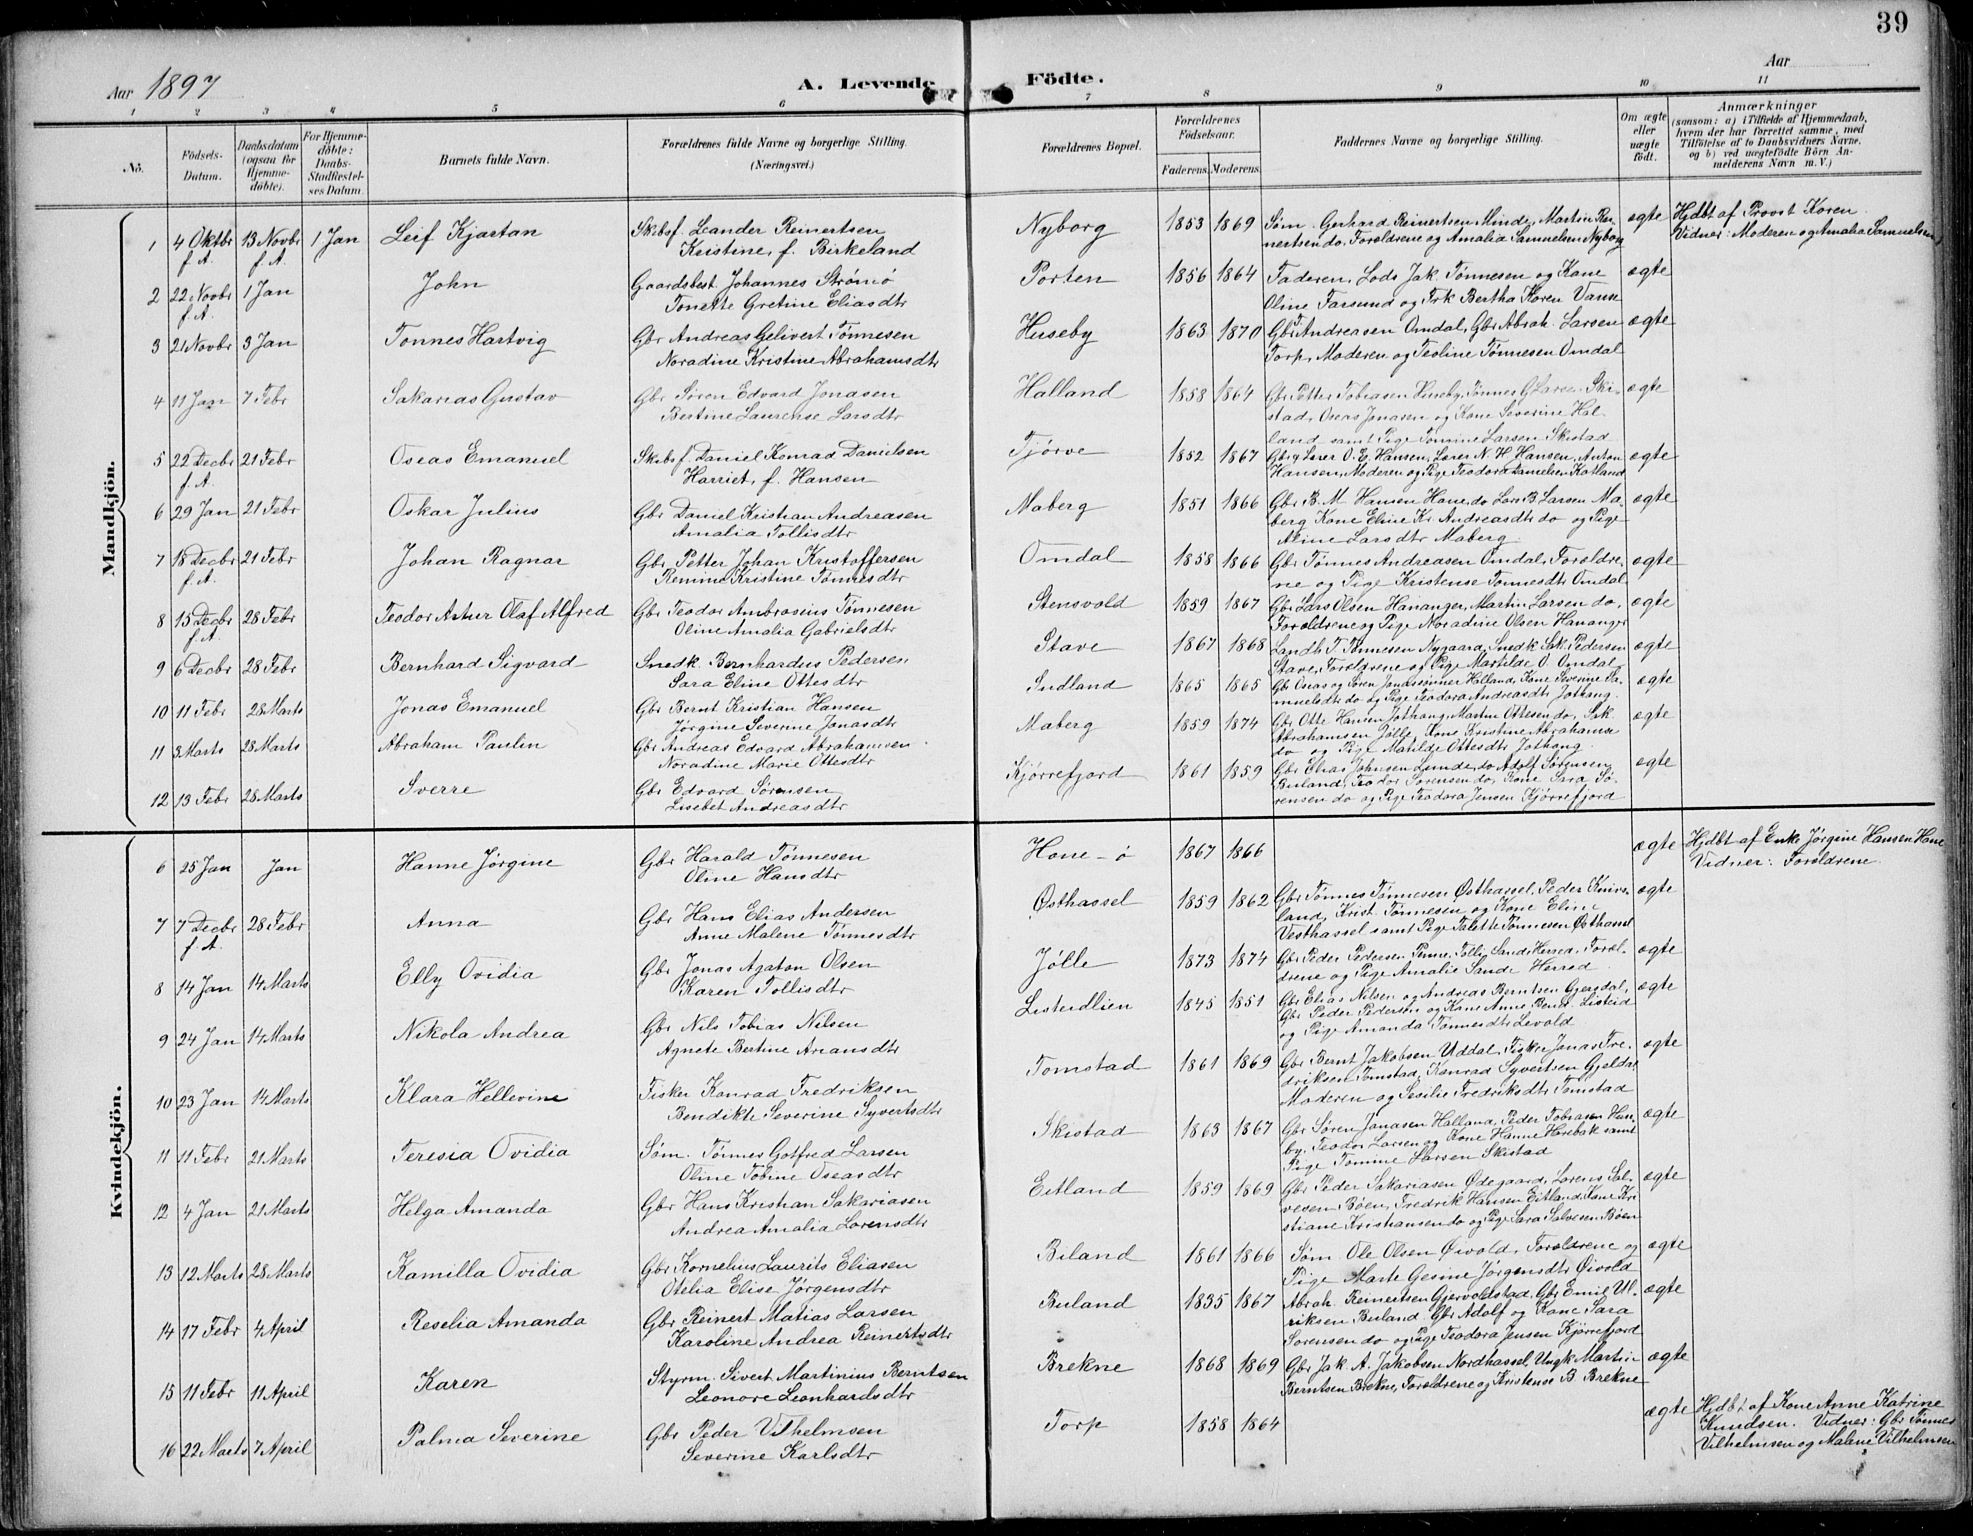 39
Aar 1897
A. Levende Födte.
Aar
1 2 3 4 5 6 7 8 9 10 11
No.
Födsels-Datum.
Daabsdatum (ogsaa for Hjemmedöbte).
For Hjemmedöbte: Daabs-Stadfæstelses Datum.
Barnets fulde Navn.
Forældrenes fulde Navne og borgerlige Stilling. (Næringsvei.)
Forældrenes Bopæl.
Forældrenes Födselsaar.
Faderens. Moderens.
Faddernes Navne og borgerlige Stilling.
Om ægte eller uægte födt.
Anmærkninger
(saasom: a) i Tilfælde af Hjemmedaab, hvem der har forrettet samme, med Tilföielse af to Daabsvidners Navne, og b) ved uægtefödte Börn Anmelderens Navn m. V.)
Mandkjön.
1 4 Oktbr f. A. 13 Novbr f. A. 1 Jan Leif Kjartan Skibsf. Leander Reinertsen
Kristine, f. Birkeland
Nyborg 1853 1869 Søm. Gerhard Reinertsen Hinde, Martin Rei-
nertsen do, Forældrene og Amalia Samuelsen Nyborg
ægte Hjdbt af Provst Koren.
Vidner: Moderen og Amalia Samuelsen
2 22 Novbr f. A. 1 Jan John Gaardsbest Johannes Strømø
Tonette Gretine Eliasdtr
Porten 1856 1864 Faderen, Lods Jak. Tønnesen og Kone
Oline Farsund og Frk Bertha Koren Vanse
ægte
3 21 Novbr 3 Jan Tonnes Hartvig Gbr Andreas Gelivert Tønnesen
Noradine Kristine Abrahamsdtr
Huseby 1863 1870 Gbr T Andreasen Omdal, Gbr Abrah. Larsen
Torp, Moderen og Teoline Tønnesen Omdal
ægte
4 11 Jan 7 Febr Sakarias Gustav Gbr Søren Edvard Jonasen
Bertine Laurense Larsdtr
Halland 1858 1864 Gbr Petter Tobiasen Huseby, Tønnes G Larsen Ski-
stad, Oseas Jonasen og Kone Severine Hal-
land samt Pige Tomine Larsen Skistad
ægte
5 22 Decbr f. A. 21 Febr Oseas Emanuel Skibsf Daniel Konrad Danielsen
Harriet, f. Hansen
Tjørve 1852 1867 Hansen, Moderen og Pige Teodora Danielsen Katland
ægte
6 29 Jan 21 Febr Oskar Julius Gbr Daniel Kristian Andreasen
Amalia Tollisdtr
Maberg 1851 1866 Gbr B. M. Hansen Hane, do Lars B. Larsen Ma-
berg Kone Eline Kr. Andreasdtr do og Pige
Aline Larsdtr Maberg
ægte
7 18 Decbr f. A. 21 Febr Johan Ragnar Gbr Petter Johan Kristoffersen
Remine Kristine Tønnesdtr
Omdal 1858 1866 Gbr Tønnes Andreasen Omdal, Foreldre-
ne og Pige Kristense Tønnesdtr Omdal
ægte
8 15 Decbr f. A. 28 Febr Teodor Artur Olaf Alfred Gbr Teodor Ambrosius Tønnesen
Oline Amalia Gabrielsdtr
Stensvold 1859 1867 Gbr Lars Olsen Hananger, Martin Larsen do,
Foreldrene og Pige Noradine Olsen Hananger
ægte
9 6 Decbr 28 Febr Bernhard Sigvard Snedk. Bernhardus Pedersen
Sara Eline Ottesdtr
Stave 1867 1868 Landh T. Tønnesen Nygaard, Snedk Sak. Pedersen
Stave, Foreldrene og Pige Martilde O. Omdal
ægte
10 11 Febr 28 Marts Jonas Emanuel Gbr Bernt Kristian Hansen
Jørgine Severine Jonasdtr
Indland 1865 1865 Gbr Oseas og Søren Jonassønner Halland, Kone Severine Sa-
muelsdtr do og Pige Teodora Andreasdtr Jothaug
ægte
11 3 Marts 28 Marts Abraham Paulin Gbr Andreas Edvard Abrahamsen
Noradine Marie Ottesdtr
Maberg 1859 1874 Gbr Otte Hansen Jothaug, Martin Ottesen do, Sak.
Abrahamsen Jølle, Kone Kristine Abrahamse
do og Pige Matilde Ottesdtr Jothaug
ægte
12 13 Febr 28 Marts Sverre Gbr Edvard Sørensen
Lisebet Andreasdtr
Kjørrefjord 1861 1859 Gbr Elias Johnsen Lunde, do Adolf Sørensen
Buland, Teodor Sørensen do, Kone Sara Sø-
rensen do og Pige Teodora Jensen Kjørrefjord
ægte
Kvindekjön.
6 25 Jan Jan Hanne Jørgine Gbr Harald Tønnesen
Oline Hansdtr
Hone-ø 1867 1866 ægte Hjdbt af Enke Jørgine Hansen Hane
Vidner: Foreldrene
7 7 Decbr f. A. 28 Febr Anna Gbr Hans Elias Andersen
Anne Malene Tønnesdtr
Østhassel 1859 1862 Gbr Tønnes Tønnesen Østhassel, Peder Knivs-
land, Krist. Tønnesen og Kone Eline
Vesthassel samt Pige Talette Tønnesen Østhassel
ægte
8 14 Jan 14 Marts Elly Ovidia Gbr Jonas Agaton Olsen
Karen Tollisdtr
Jølle 1873 1874 Gbr Peder Pedersen Penne, Tolli Sande Herred, Forel-
drene og Pige Amalie Sande Herred
ægte
9 24 Jan 14 Marts Nikola Andrea Gbr Nils Tobias Nilsen
Agnete Bertine Ariansdtr
Listeidlien 1845 1851 Gbr Elias Nilsen og Andreas Berntsen Gjersdal,
Gbr Peder Pedersen og Kone Anne Bernt. Listeid
og Pige Amanda Tønnesdtr Levold
ægte
10 23 Jan 14 Marts Klara Hellevine Fisker Konrad Fredriksen
Bendikte Severine Syvertsdtr
Tomstad 1861 1869 Gbr Bernt Jakobsen Uddal, Fisker Jonas Fre-
driksen Tomstad, Konrad Syvertsen Gjeldal
Moderen og Sesilie Fredriksdtr Tomstad
ægte
11 11 Febr 21 Marts Teresia Ovidia Søm. Tønnes Gotfred Larsen
Oline Tobine Oseasdtr
Skistad 1863 1867 Gbr Søren Jonasen Halland, Peder Tobiasen Huse-
by, Teodor Larsen og Kone Hanne Horsbak samt
Pige Tomine Larsen Skistad
ægte
12 4 Jan 21 Marts Helga Amanda Gbr Hans Kristian Sakariasen
Andrea Amalia Lorensdtr
Eitland 1859 1869 Gbr Peder Sakariasen Ødegaard, Lorens Sal-
vesen Bøen, Fredrik Hansen Eitland, Kone Kri-
stiane Kristiansen do og Pige Sara Salvesen Bøen
ægte
13 12 Marts 28 Marts Kamilla Ovidia Gbr Kornelius Laurits Eliasen
Otelia Elise Jørgensdtr
Biland 1861 1866 Søm. Ole Olsen Øivold, Foreldrene og
Pige Marte Gesine Jørgensdtr Øivold
ægte
14 17 Febr 4 April Roselia Amanda Gbr Reinert Matias Larsen
Karoline Andrea Reinertsdtr
Buland 1835 1867 Abrah. Reinertsen Gjervoldstad, Gbr Emil Ul-
riksen Buland Gbr Adolf og Kone Sara
Sorensen do og Pige Teodora Jensen Kjørrefjord
ægte
15 11 Febr 11 April Karen Styrm. Sivert Martinius Berntsen
Leonore Leonhardsdtr
Brekne 1868 1869 Gbr Jak. A. Jakobsen Nordhassel, Ungk Martin
Berntsen Brekne, Foreldrene og Kristense B. Brekne
ægte
16 22 Marts 7 April Palma Severine Gbr Peder Vilhelmsen
Severine Karlsdtr
Torp 1858 1864 ægte Hjdbt af Kone Anne Katrine
Knudsen. Vidner: Gbr Tønnes
Vilhelmsen og Malene Vilhelmsen